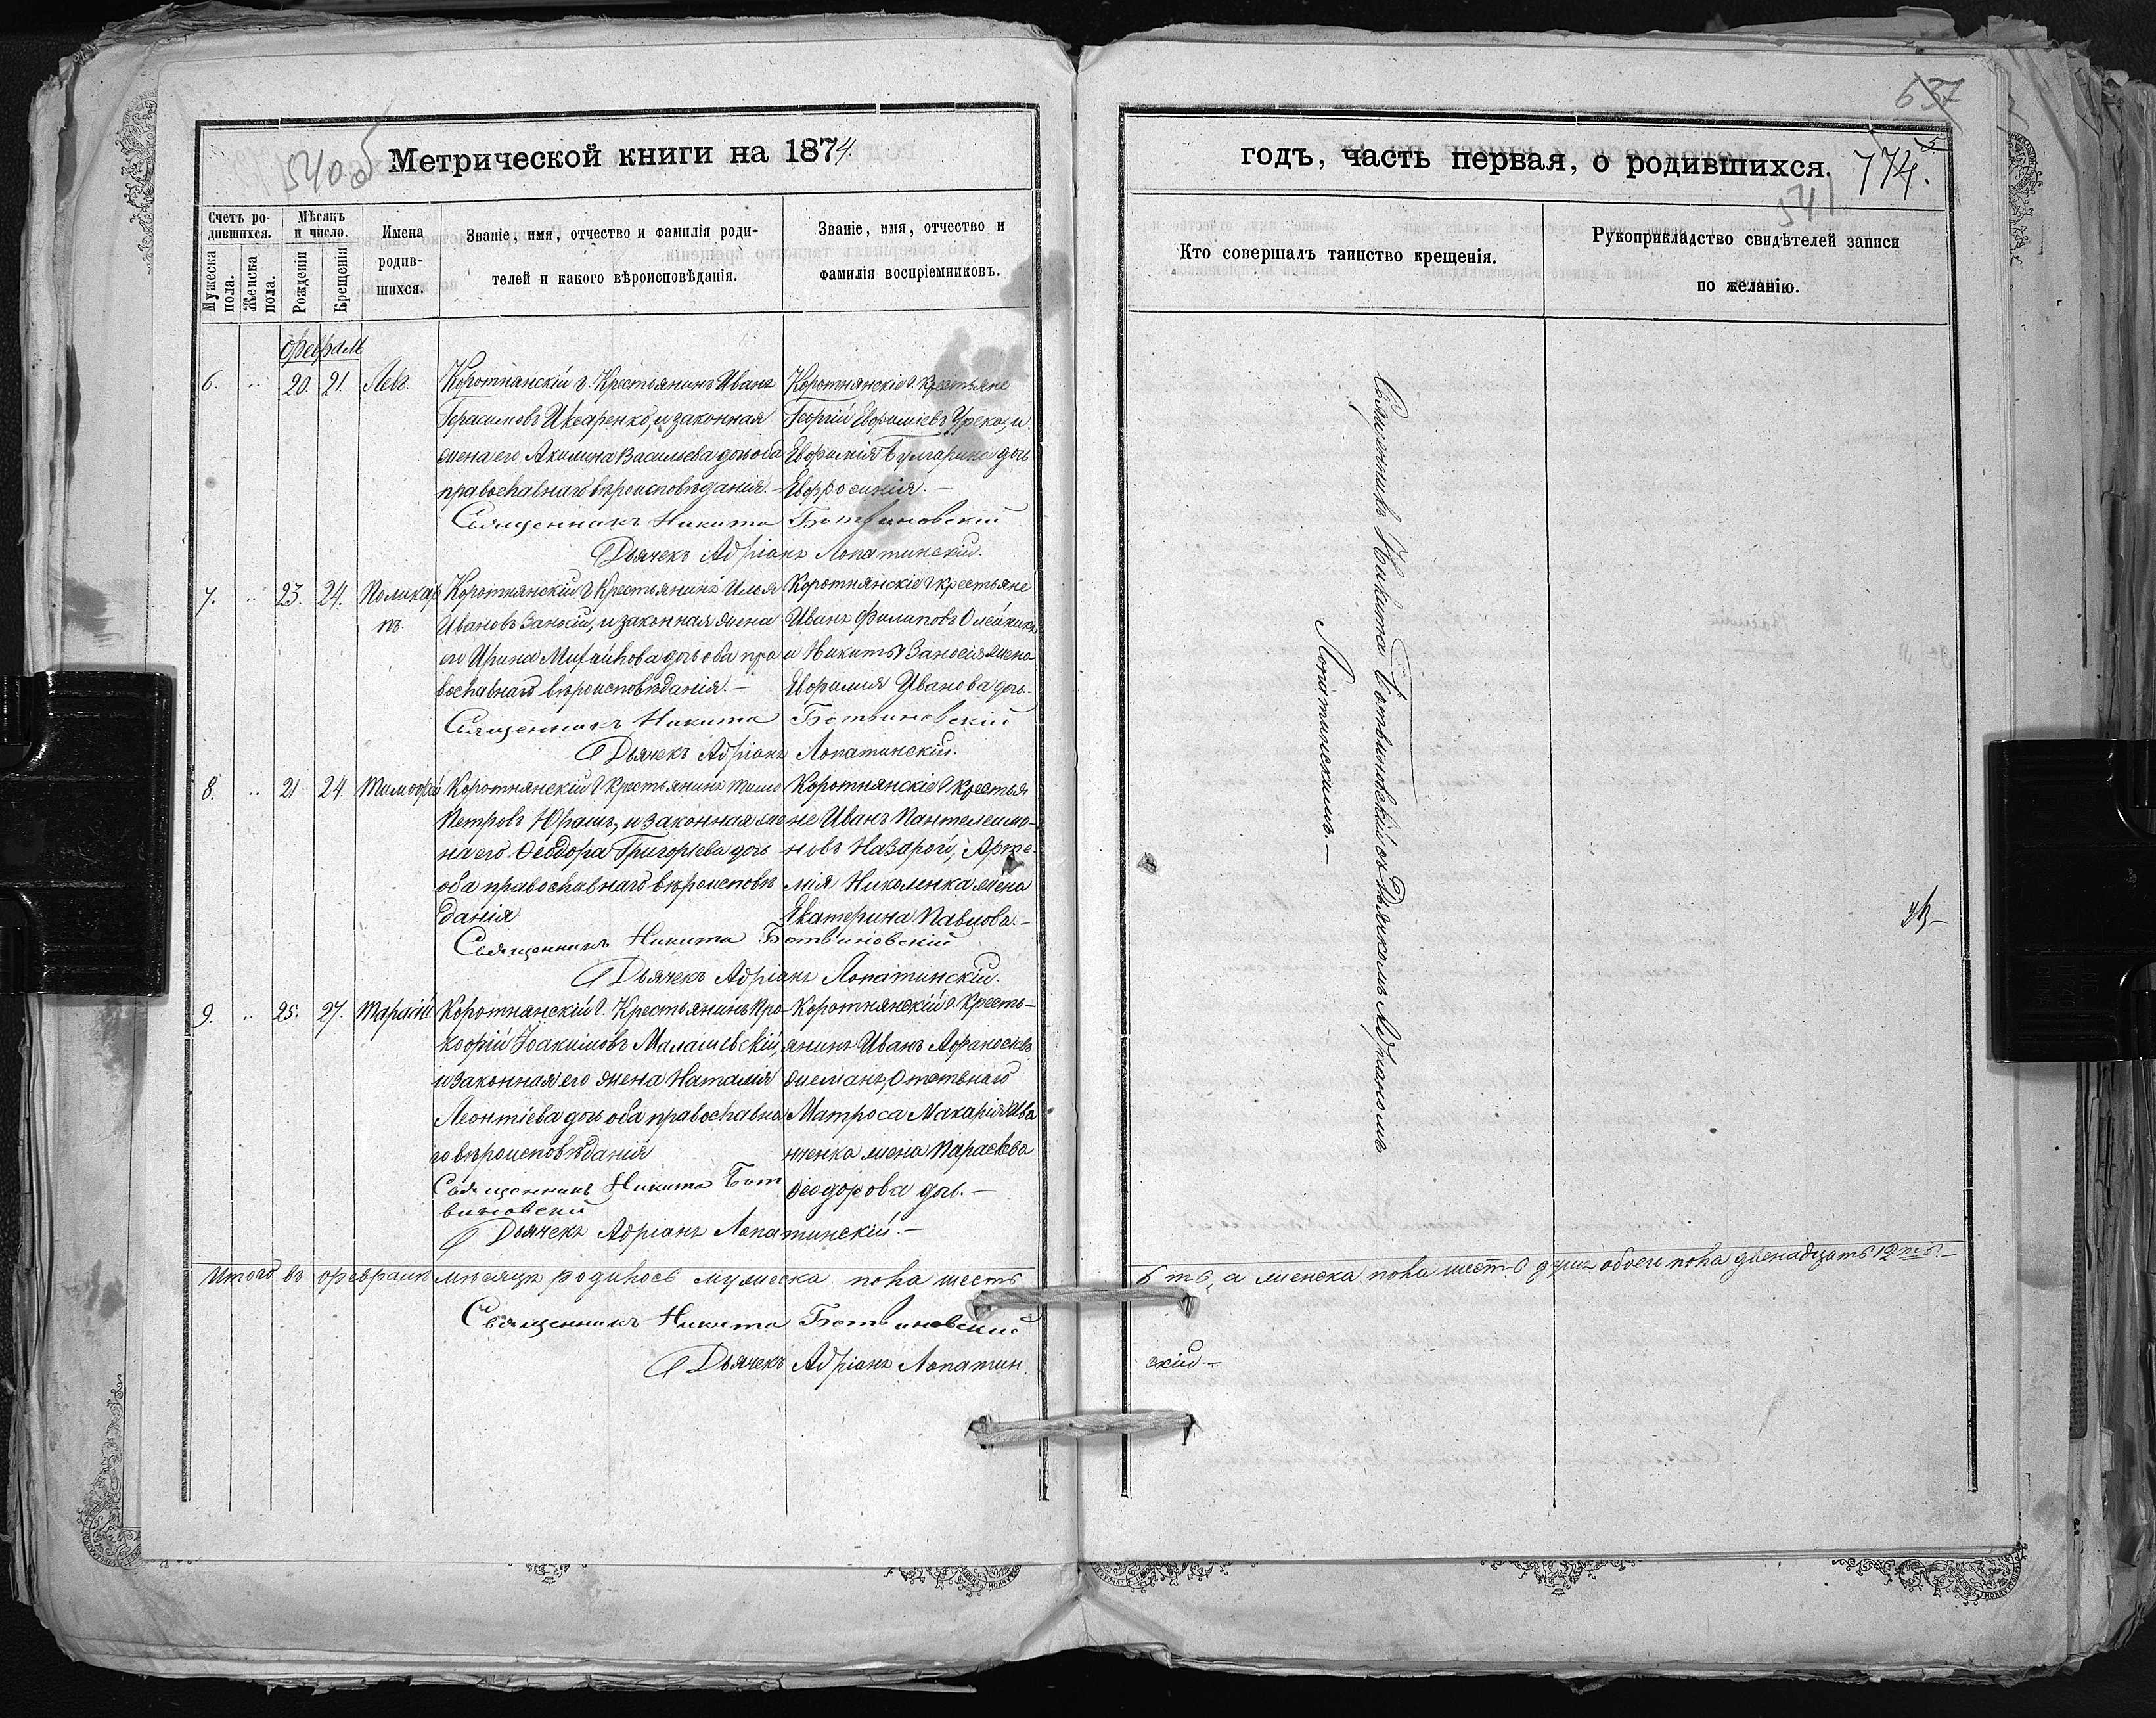 540 об
Метрической книги на 1874.
Счетъ ро-
дившихся.
Мѣсяцъ
и число.
Мужеска
пола.
Женска
пола.
Рожденія
Крещенія
Имена
родив-
шихся.
Званіе, имя, отчество и фамилія роди-
телей и какого вѣроисповѣданія.
Званіе, имя, отчество и
фамилія воспріемниковъ.
Февраль
6. 20. 21. Левъ.
Коротнянскій Крестьянинъ Иванъ
Герасимовъ и законная
жена его Акилина Васильева дочь оба
православнаго вѣроисповѣданія.-
Коротнянскіе крестьяне
Георгій Евфиміевъ Урска, и
Евфимія Булгарина дочь
Евфросинія.-
Священникъ Никита Ботвиновскій
Дьячекъ Адріанъ Лопатинскій.
7. 23. 24. Поликар
пъ.
Коротнянскій Крестьянинъ Илья
Ивановъ Заносій, и законная жена
его Ирина Михайлова дочь оба пра
вославнаго вѣроисповѣданія.-
Коротнянскіе крестьяне
Иванъ Филиповъ Олейникъ
и Никиты Заносія жена
Евфимія Иванова дочь.-
Священникъ Никита Ботвиновскій
Дьячекъ Адріанъ Лопатинскій.
8. 21 24. Тимофей
Коротнянскій Крестьянинъ
Петровъ Юрашъ, и законная же
на его Ѳеодора Григорьева дочь
оба православнаго вѣроисповѣ
данія
Коротнянскіе Крестья
не Иванъ Пантелеимо-
новъ Назарой, Арте-
мія Николенка жена
Екатерина Павлова.-
Священникъ Никита Ботвиновскій
Дьячекъ Адріанъ Лопатинскій.
9. 25. 27. Тарасій.
Коротнянскій Крестьянинъ Про-
кофій Іоакимовъ Малашевскій,
и законная его жена Наталія
Леонтіева дочь оба православна
го вѣроисповѣданія
Коротнянскій Кресть-
янинъ Иванъ
Матроса Макарія Ива
ненка жена Параскева
Ѳеодорова дочь.-
Священникъ Никита Бот
виновскій
Дьячекъ Адріанъ Лопатинскій.-
Итого въ февралѣ мѣсяцѣ родилось мужеска пола шесть
Священникъ Никита Ботвиновскій
Дьячекъ Адріанъ Лопатин
637
годъ, часть первая, о родившихся.
774.
541
Кто совершалъ таинство крещенія.
Рукоприкладство свидѣтелей записи
по желанію.
Священникъ Никита Ботвиновскій съ Дьячкомъ Адріаномъ
Лопатинскимъ.-
6 ть, а женска пола шесть 6 душъ обоего пола двенадцать 12 ть.-
скій.-